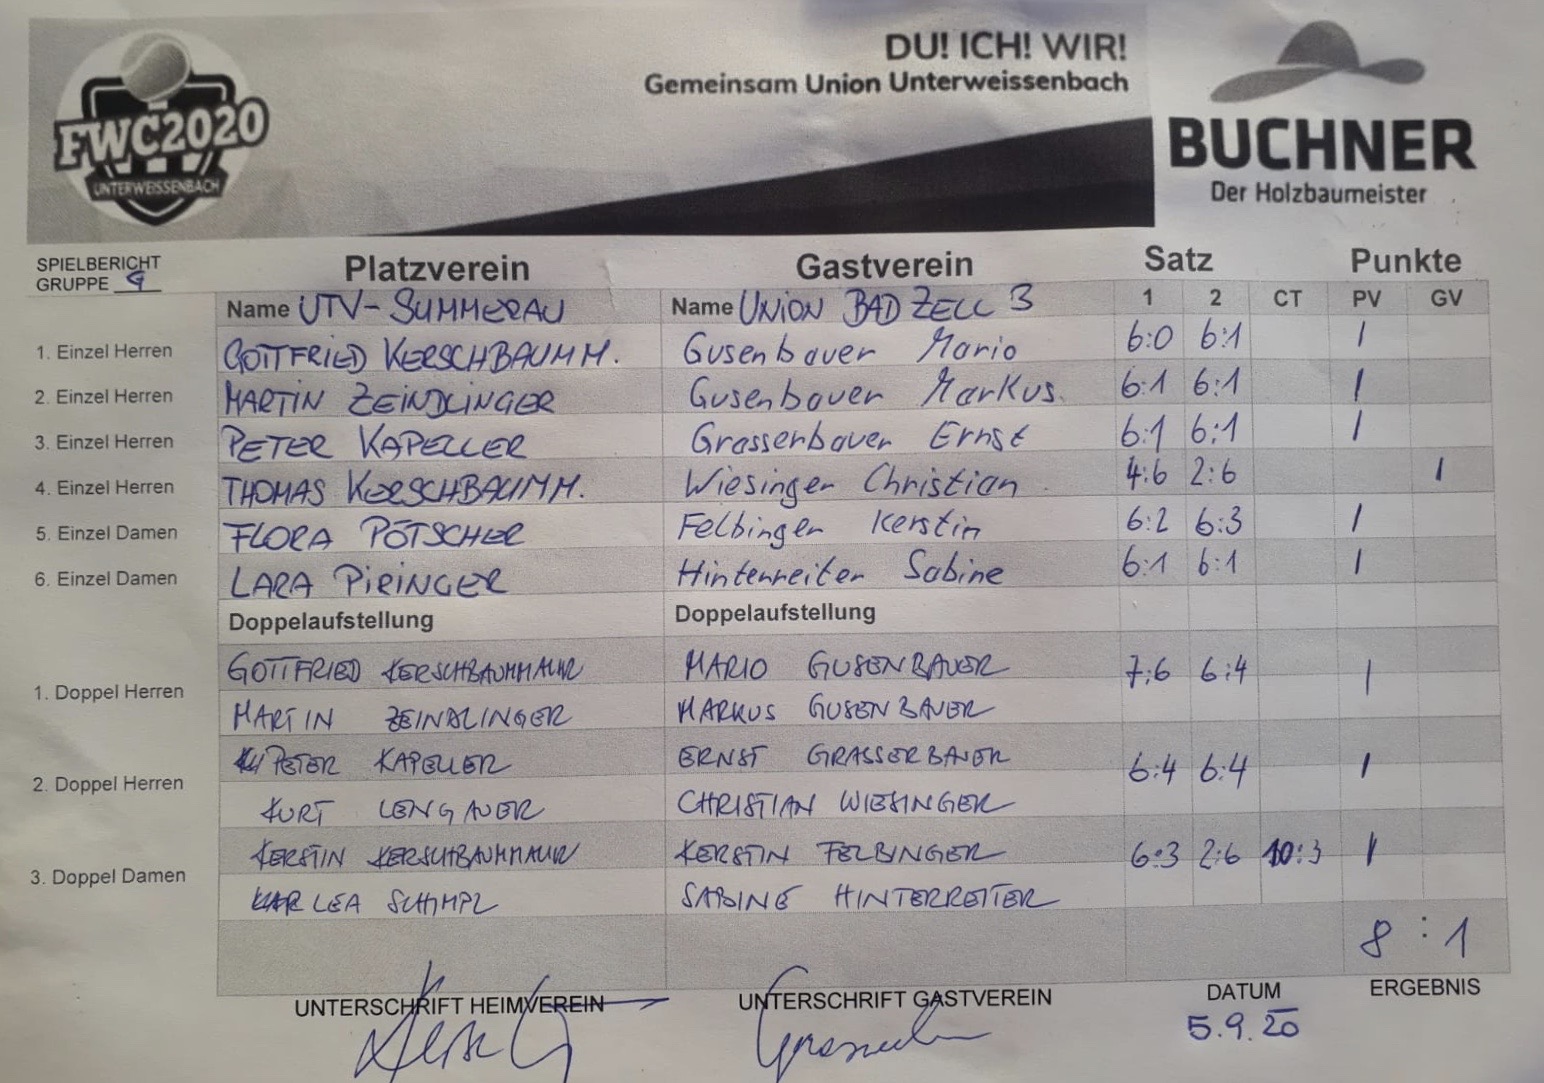 DU! ICH! WIR!
Gemeinsam Union Unterweissenbach
FWC2020
UNTERWEISSENBACH
BUCHNER
Der Holzbaumeister
SPIELBERICHT
GRUPPE G
Platzverein Gastverein Satz Punkte
Name UTV-SUMMERAU Name UNION BAD ZELL 3 1 2 CT PV GV
1. Einzel Herren GOTTFRIED KERSCHBAUMM. Gusenbauer Mario 6:0 6:1 1
2. Einzel Herren MARTIN ZEINDLINGER Gusenbauer Markus. 6:1 6:1 1
3. Einzel Herren PETER KAPELLER Grassenbauer Ernst 6:1 6:1 1
4. Einzel Herren THOMAS KERSCHBAUMM. Wiesinger Christian 4:6 2:6 1
5. Einzel Damen FLORA PÖTSCHER Felbinger Kerstin 6:2 6:3 1
6. Einzel Damen LARA PIRINGER Hinterreiter Sabine 6:1 6:1 1
Doppelaufstellung Doppelaufstellung
1. Doppel Herren GOTTFRIED KERSCHBAUMMAUR MARIO GUSENBAUER 7:6 6:4 1
MARTIN ZEINDLINGER MARKUS GUSENBAUER
2. Doppel Herren PETER KAPELLER ERNST GRASSERBAUER 6:4 6:4 1
KURT LENGAUER CHRISTIAN WIESINGER
3. Doppel Damen KERSTIN KERSCHBAUMMAUR KERSTIN FELBINGER 6:3 2:6 10:3 1
LEA SCHIMPL SABINE HINTERREITER
8 : 1
UNTERSCHRIFT HEIMVEREIN UNTERSCHRIFT GASTVEREIN DATUM ERGEBNIS
5.9.20